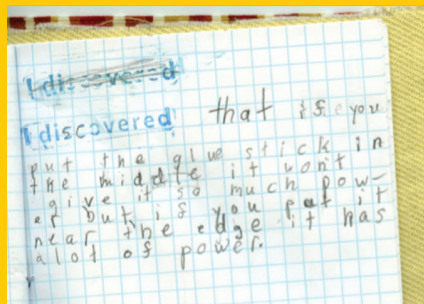 I discovered
I discovered that if you
put the glue stick in
the middle it wont
give it so much pow-
er but if you put it
near the edge it has
alot of power.